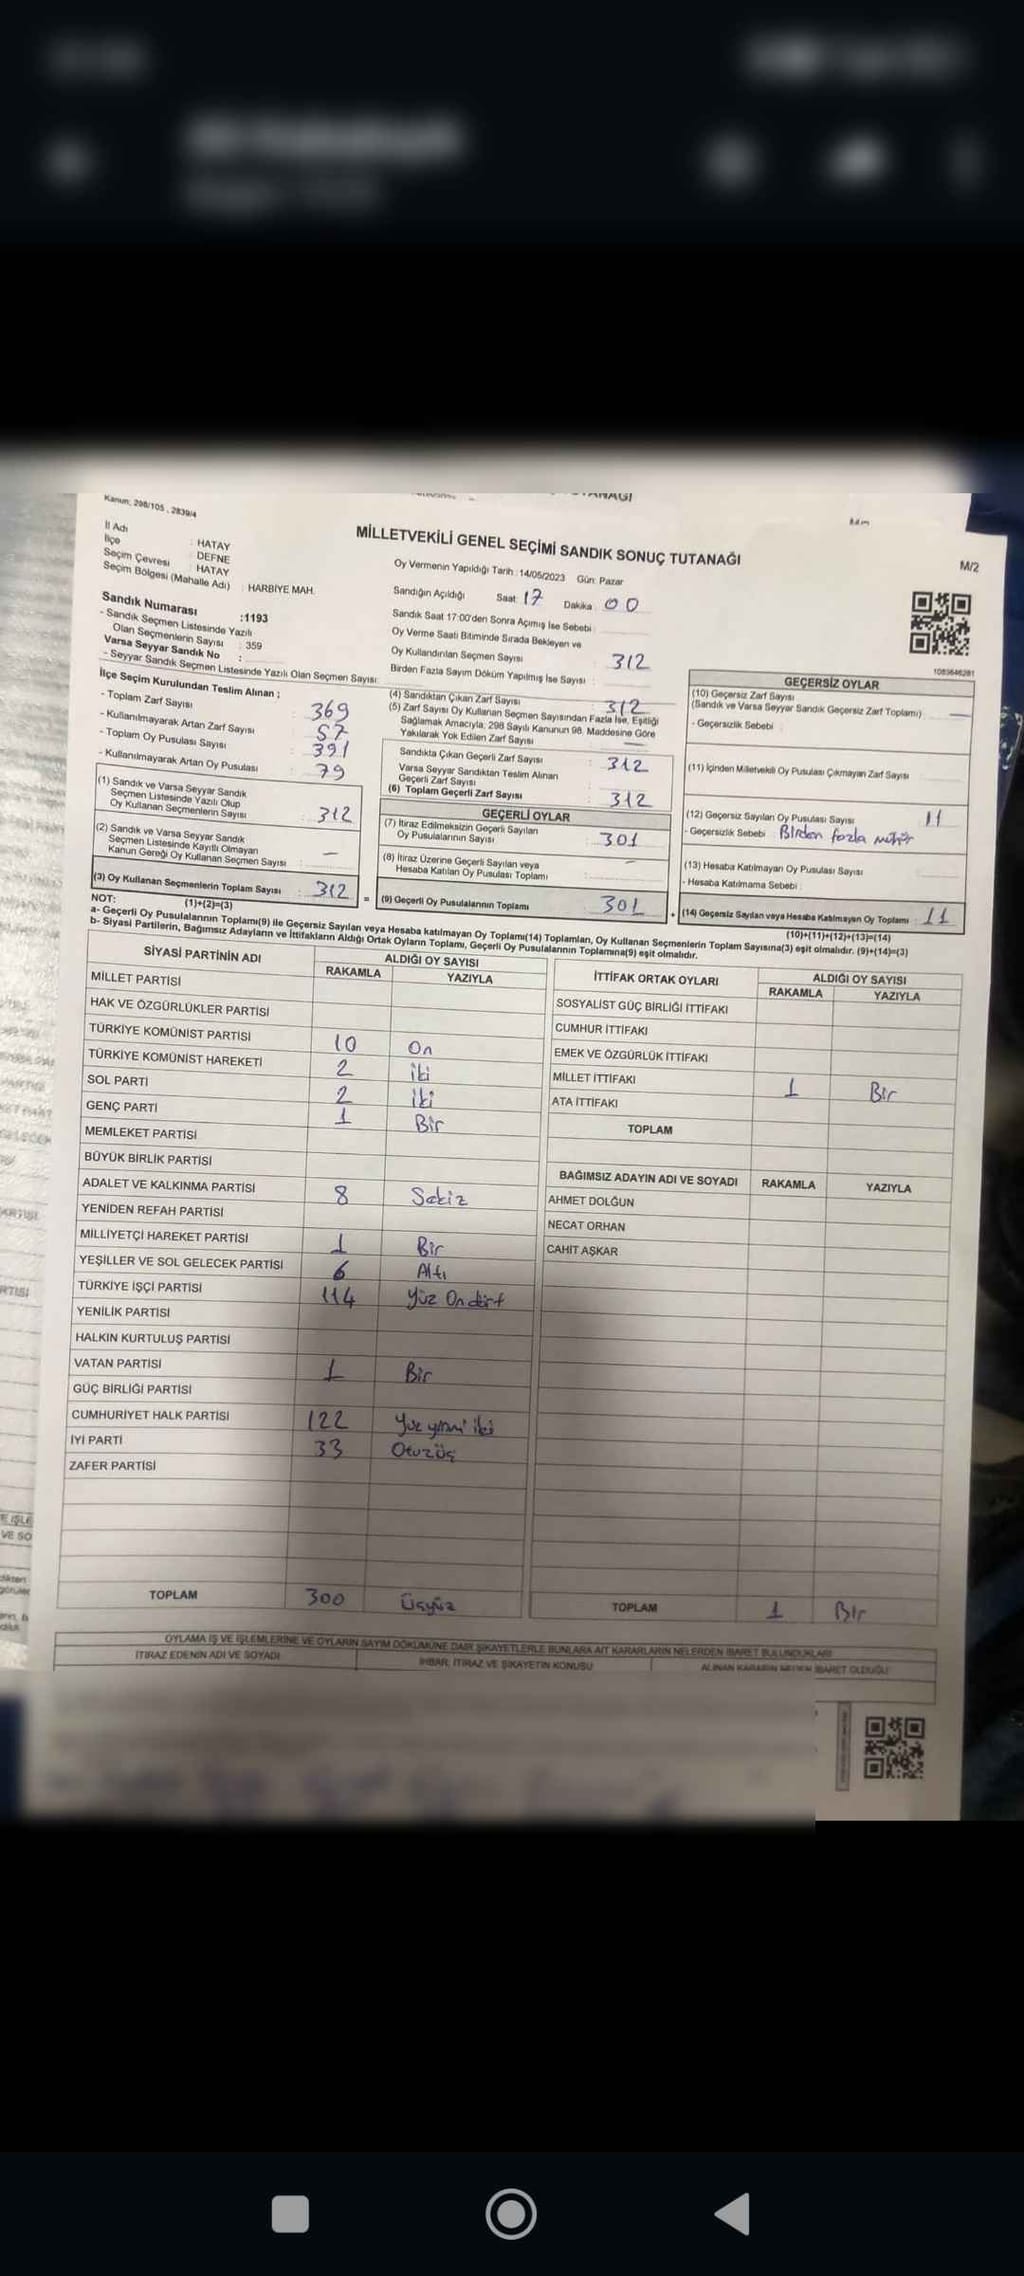 TUTANAĞI
Kanun: 298/105 , 2839/4
MİLLETVEKİLİ GENEL SEÇİMİ SANDIK SONUÇ TUTANAĞI
M/2
İl Adı : HATAY
İlçe : DEFNE
Seçim Çevresi : HATAY
Seçim Bölgesi (Mahalle Adı) : HARBİYE MAH.
Oy Vermenin Yapıldığı Tarih : 14/05/2023 Gün: Pazar
Sandığın Açıldığı Saat: 17 Dakika : 00
Sandık Saat 17:00'den Sonra Açımış İse Sebebi :
Oy Verme Saati Bitiminde Sırada Bekleyen ve
Oy Kullandırılan Seçmen Sayısı : 312
Birden Fazla Sayım Döküm Yapılmış İse Sayısı :
Sandık Numarası :1193
- Sandık Seçmen Listesinde Yazılı
Olan Seçmenlerin Sayısı : 359
Varsa Seyyar Sandık No :
- Seyyar Sandık Seçmen Listesinde Yazılı Olan Seçmen Sayısı:
1089646281
İlçe Seçim Kurulundan Teslim Alınan ;
- Toplam Zarf Sayısı : 369
- Kullanılmayarak Artan Zarf Sayısı : 57
- Toplam Oy Pusulası Sayısı : 391
- Kullanılmayarak Artan Oy Pusulası : 79
(1) Sandık ve Varsa Seyyar Sandık
Seçmen Listesinde Yazılı Olup
Oy Kullanan Seçmenlerin Sayısı : 312
(2) Sandık ve Varsa Seyyar Sandık
Seçmen Listesinde Kayıtlı Olmayan
Kanun Gereği Oy Kullanan Seçmen Sayısı : –
(3) Oy Kullanan Seçmenlerin Toplam Sayısı : 312
(1)+(2)=(3)
(4) Sandıktan Çıkan Zarf Sayısı : 312
(5) Zarf Sayısı Oy Kullanan Seçmen Sayısından Fazla İse, Eşitliği
Sağlamak Amacıyla, 298 Sayılı Kanunun 98. Maddesine Göre
Yakılarak Yok Edilen Zarf Sayısı : —
Sandıkta Çıkan Geçerli Zarf Sayısı : 312
Varsa Seyyar Sandıktan Teslim Alınan
Geçerli Zarf Sayısı :
(6) Toplam Geçerli Zarf Sayısı : 312
GEÇERLİ OYLAR
(7) İtiraz Edilmeksizin Geçerli Sayılan
Oy Pusulalarının Sayısı : 301
(8) İtiraz Üzerine Geçerli Sayılan veya
Hesaba Katılan Oy Pusulası Toplamı : –
= (9) Geçerli Oy Pusulalarının Toplamı 301
GEÇERSİZ OYLAR
(10) Geçersiz Zarf Sayısı
(Sandık ve Varsa Seyyar Sandık Geçersiz Zarf Toplamı) : —
- Geçersizlik Sebebi :
(11) İçinden Milletvekili Oy Pusulası Çıkmayan Zarf Sayısı
(12) Geçersiz Sayılan Oy Pusulası Sayısı : 11
- Geçersizlik Sebebi : Birden fazla mühür
(13) Hesaba Katılmayan Oy Pusulası Sayısı :
- Hesaba Katılmama Sebebi :
+ (14) Geçersiz Sayılan veya Hesaba Katılmayan Oy Toplamı : 11
(10)+(11)+(12)+(13)=(14)
NOT:
a- Geçerli Oy Pusulalarının Toplamı(9) ile Geçersiz Sayılan veya Hesaba katılmayan Oy Toplamı(14) Toplamları, Oy Kullanan Seçmenlerin Toplam Sayısına(3) eşit olmalıdır. (9)+(14)=(3)
b- Siyasi Partilerin, Bağımsız Adayların ve İttifakların Aldığı Ortak Oyların Toplamı, Geçerli Oy Pusulalarının Toplamına(9) eşit olmalıdır.
SİYASİ PARTİNİN ADI ALDIĞI OY SAYISI
RAKAMLA YAZIYLA
MİLLET PARTİSİ
HAK VE ÖZGÜRLÜKLER PARTİSİ
TÜRKİYE KOMÜNİST PARTİSİ 10 On
TÜRKİYE KOMÜNİST HAREKETİ 2 iki
SOL PARTİ 2 iki
GENÇ PARTİ 1 Bir
MEMLEKET PARTİSİ
BÜYÜK BİRLİK PARTİSİ
ADALET VE KALKINMA PARTİSİ 8 Sekiz
YENİDEN REFAH PARTİSİ
MİLLİYETÇİ HAREKET PARTİSİ 1 Bir
YEŞİLLER VE SOL GELECEK PARTİSİ 6 Altı
TÜRKİYE İŞÇİ PARTİSİ 114 Yüz On dört
YENİLİK PARTİSİ
HALKIN KURTULUŞ PARTİSİ
VATAN PARTİSİ 1 Bir
GÜÇ BİRLİĞİ PARTİSİ
CUMHURİYET HALK PARTİSİ 122 Yüz yirmi iki
İYİ PARTİ 33 Otuzüç
ZAFER PARTİSİ
TOPLAM 300 Üçyüz
İTTİFAK ORTAK OYLARI ALDIĞI OY SAYISI
RAKAMLA YAZIYLA
SOSYALİST GÜÇ BİRLİĞİ İTTİFAKI
CUMHUR İTTİFAKI
EMEK VE ÖZGÜRLÜK İTTİFAKI
MİLLET İTTİFAKI 1 Bir
ATA İTTİFAKI
TOPLAM
BAĞIMSIZ ADAYIN ADI VE SOYADI RAKAMLA YAZIYLA
AHMET DOLĞUN
NECAT ORHAN
CAHİT AŞKAR
TOPLAM 1 Bir
OYLAMA İŞ VE İŞLEMLERİNE VE OYLARIN SAYIM DÖKÜMÜNE DAİR ŞİKAYETLERLE BUNLARA AİT KARARLARIN NELERDEN İBARET BULUNDUKLARI
İTİRAZ EDENİN ADI VE SOYADI İHBAR, İTİRAZ VE ŞİKAYETİN KONUSU ALINAN KARARIN NEDEN İBARET OLDUĞU